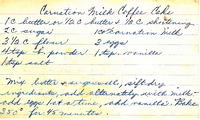 Carnation Milk Coffee Cake
1 C butter or 1/2 C butter & 1/2 C shortening
2 C sugar 1 C Carnation Milk
3 1/2 C flour 3 eggs
4 tsp b. powder 1 tsp vanilla
1 tsp salt
Mix butter & sugar well, sift dry
ingredients, add alternately with milk -
add eggs 1 at a time, add vanilla. Bake
350° for 45 minutes.